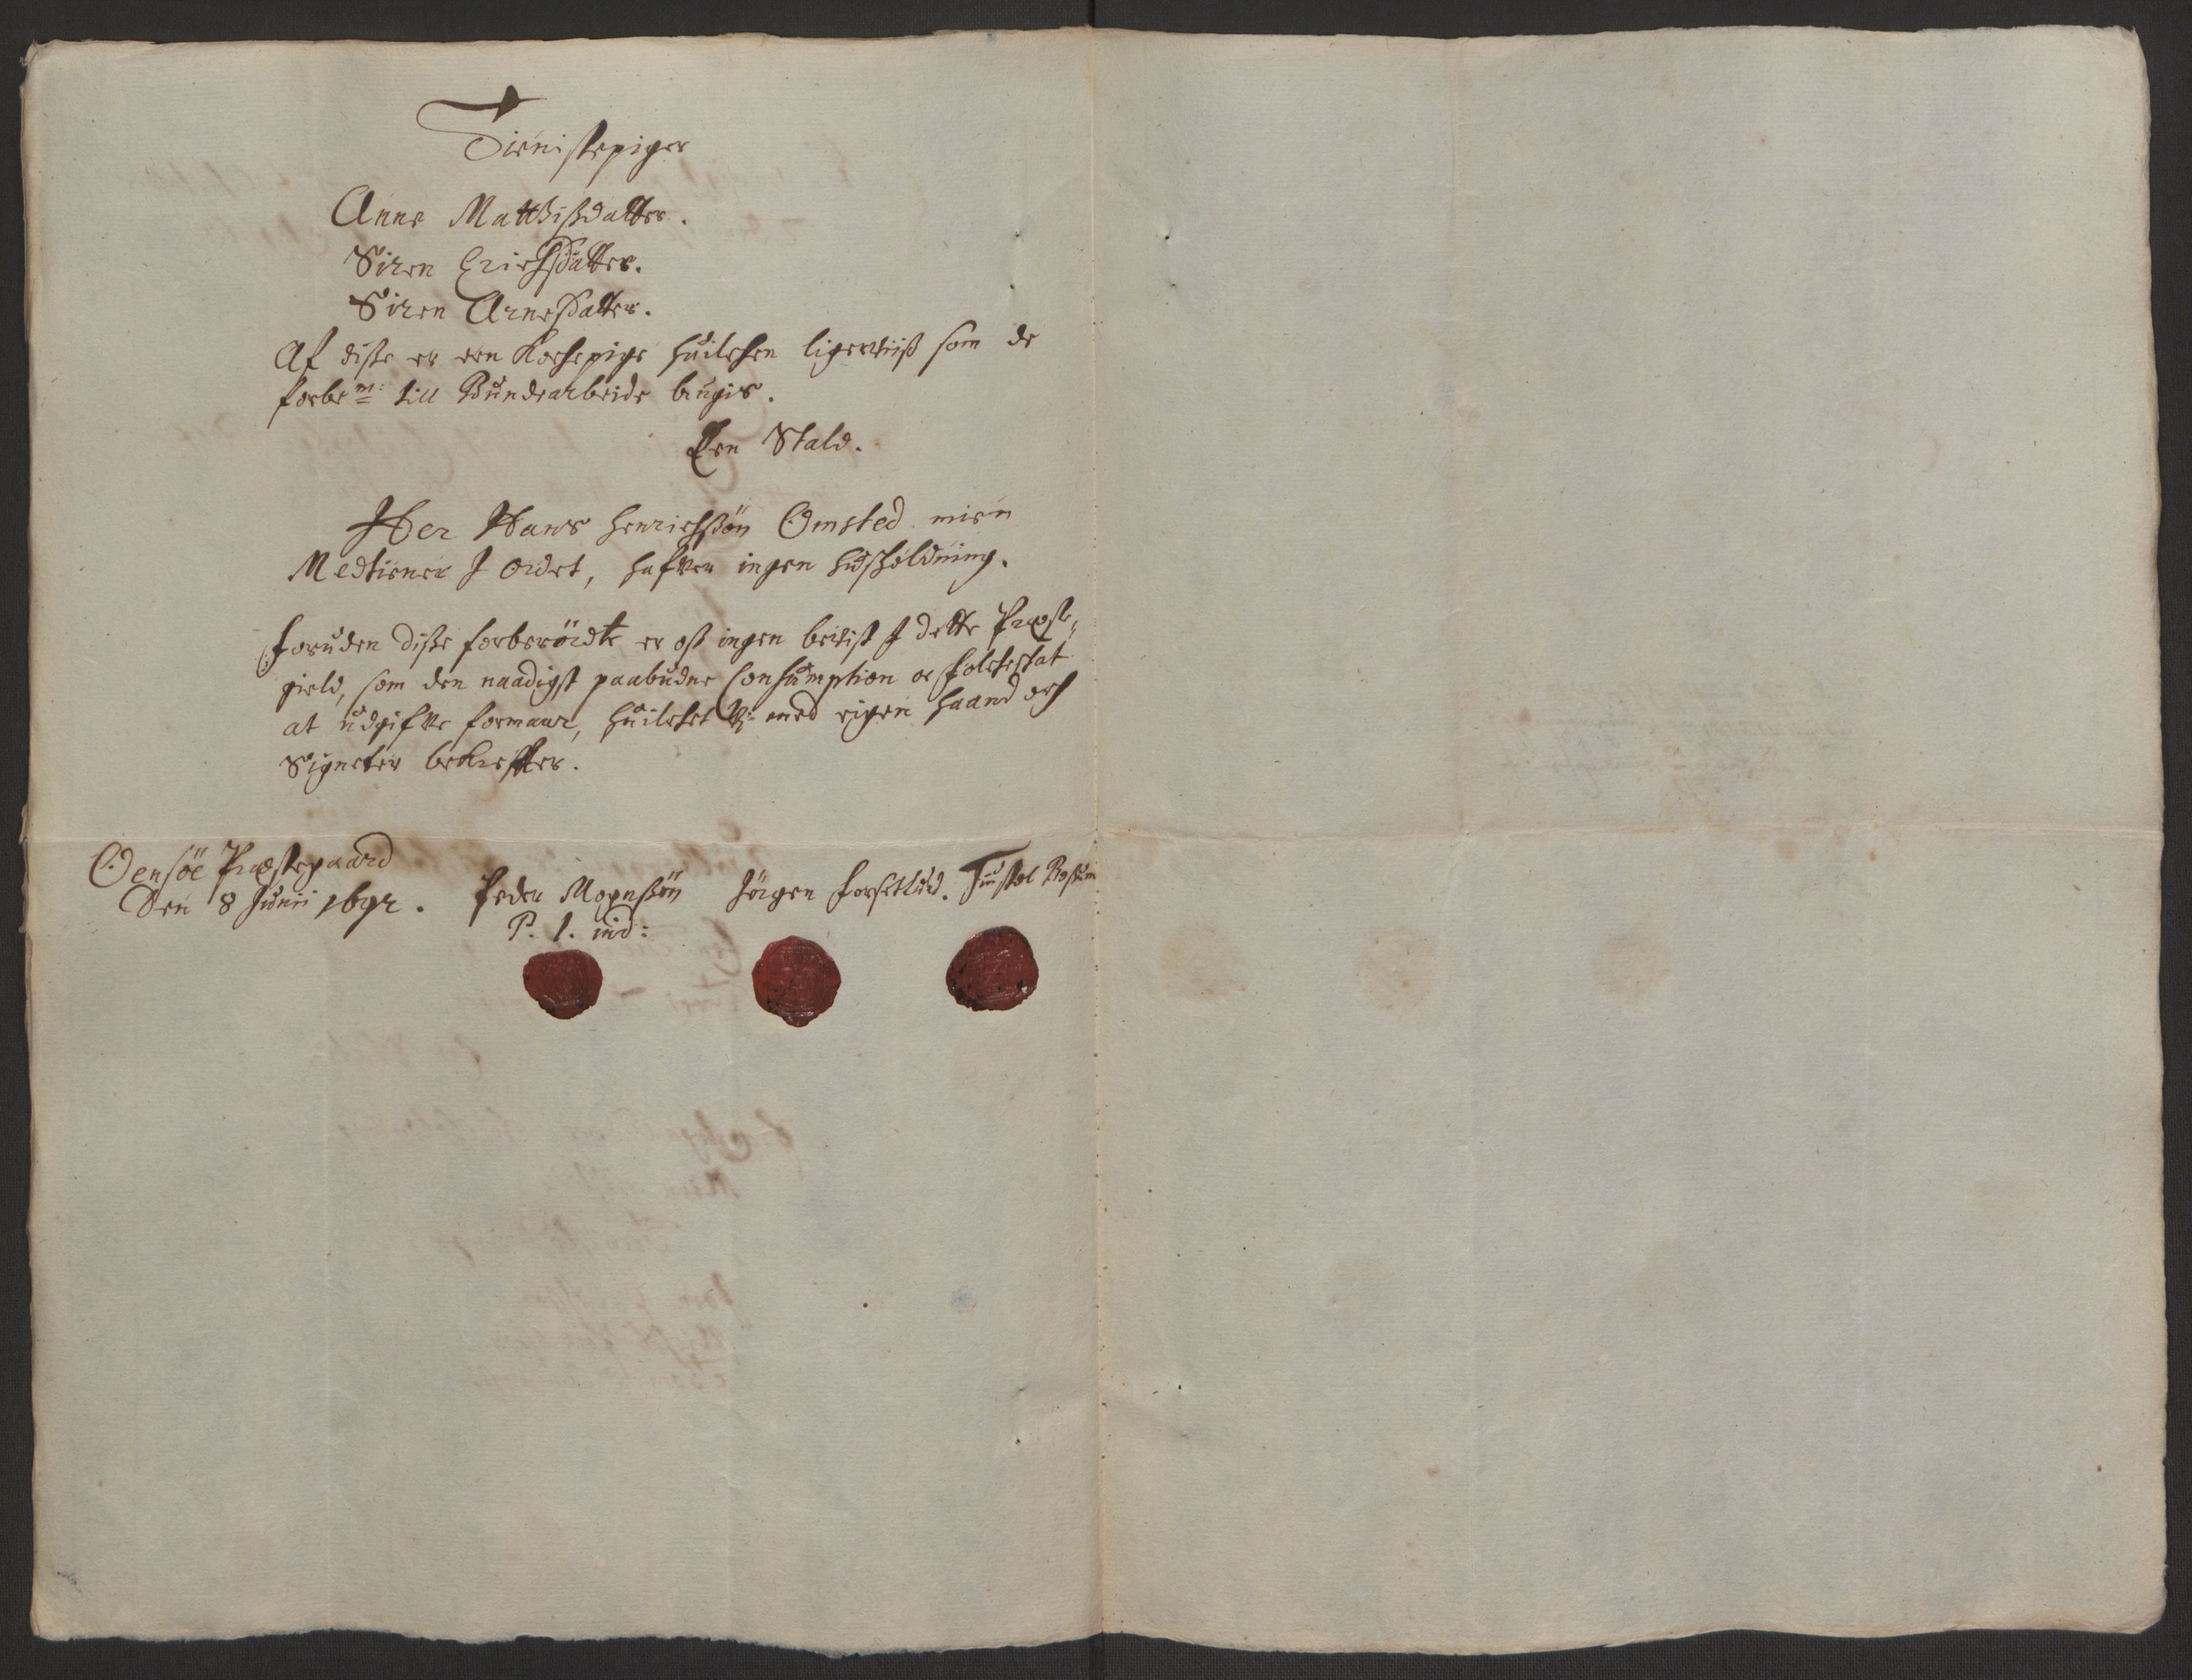 Tienistepiger
Anne Matthißdatter.
Siren Erichsdatter.
Siren Arnesdatter.
Af disse er een Kochepige huilchen ligerviiß som de
forbe^m: till Bundearbeide brugis.
Een Stald.
Her Hans Henrichßøn Omsted mien
Medtiener J Ordet, hafver ingen Hußholdning.
Foruden disse forberörte er oß ingen bevist J dette Præste-
gield, som den naadigst paabudne Consumption oc Folcheskat
at udgifve formaar, huilchet Vi med eigen haand och
Signeter bekrefter.
Odensöe Præstegaard
Den 8 Junii 1692. Peder Mognsøn Jörgen
P. l. md: